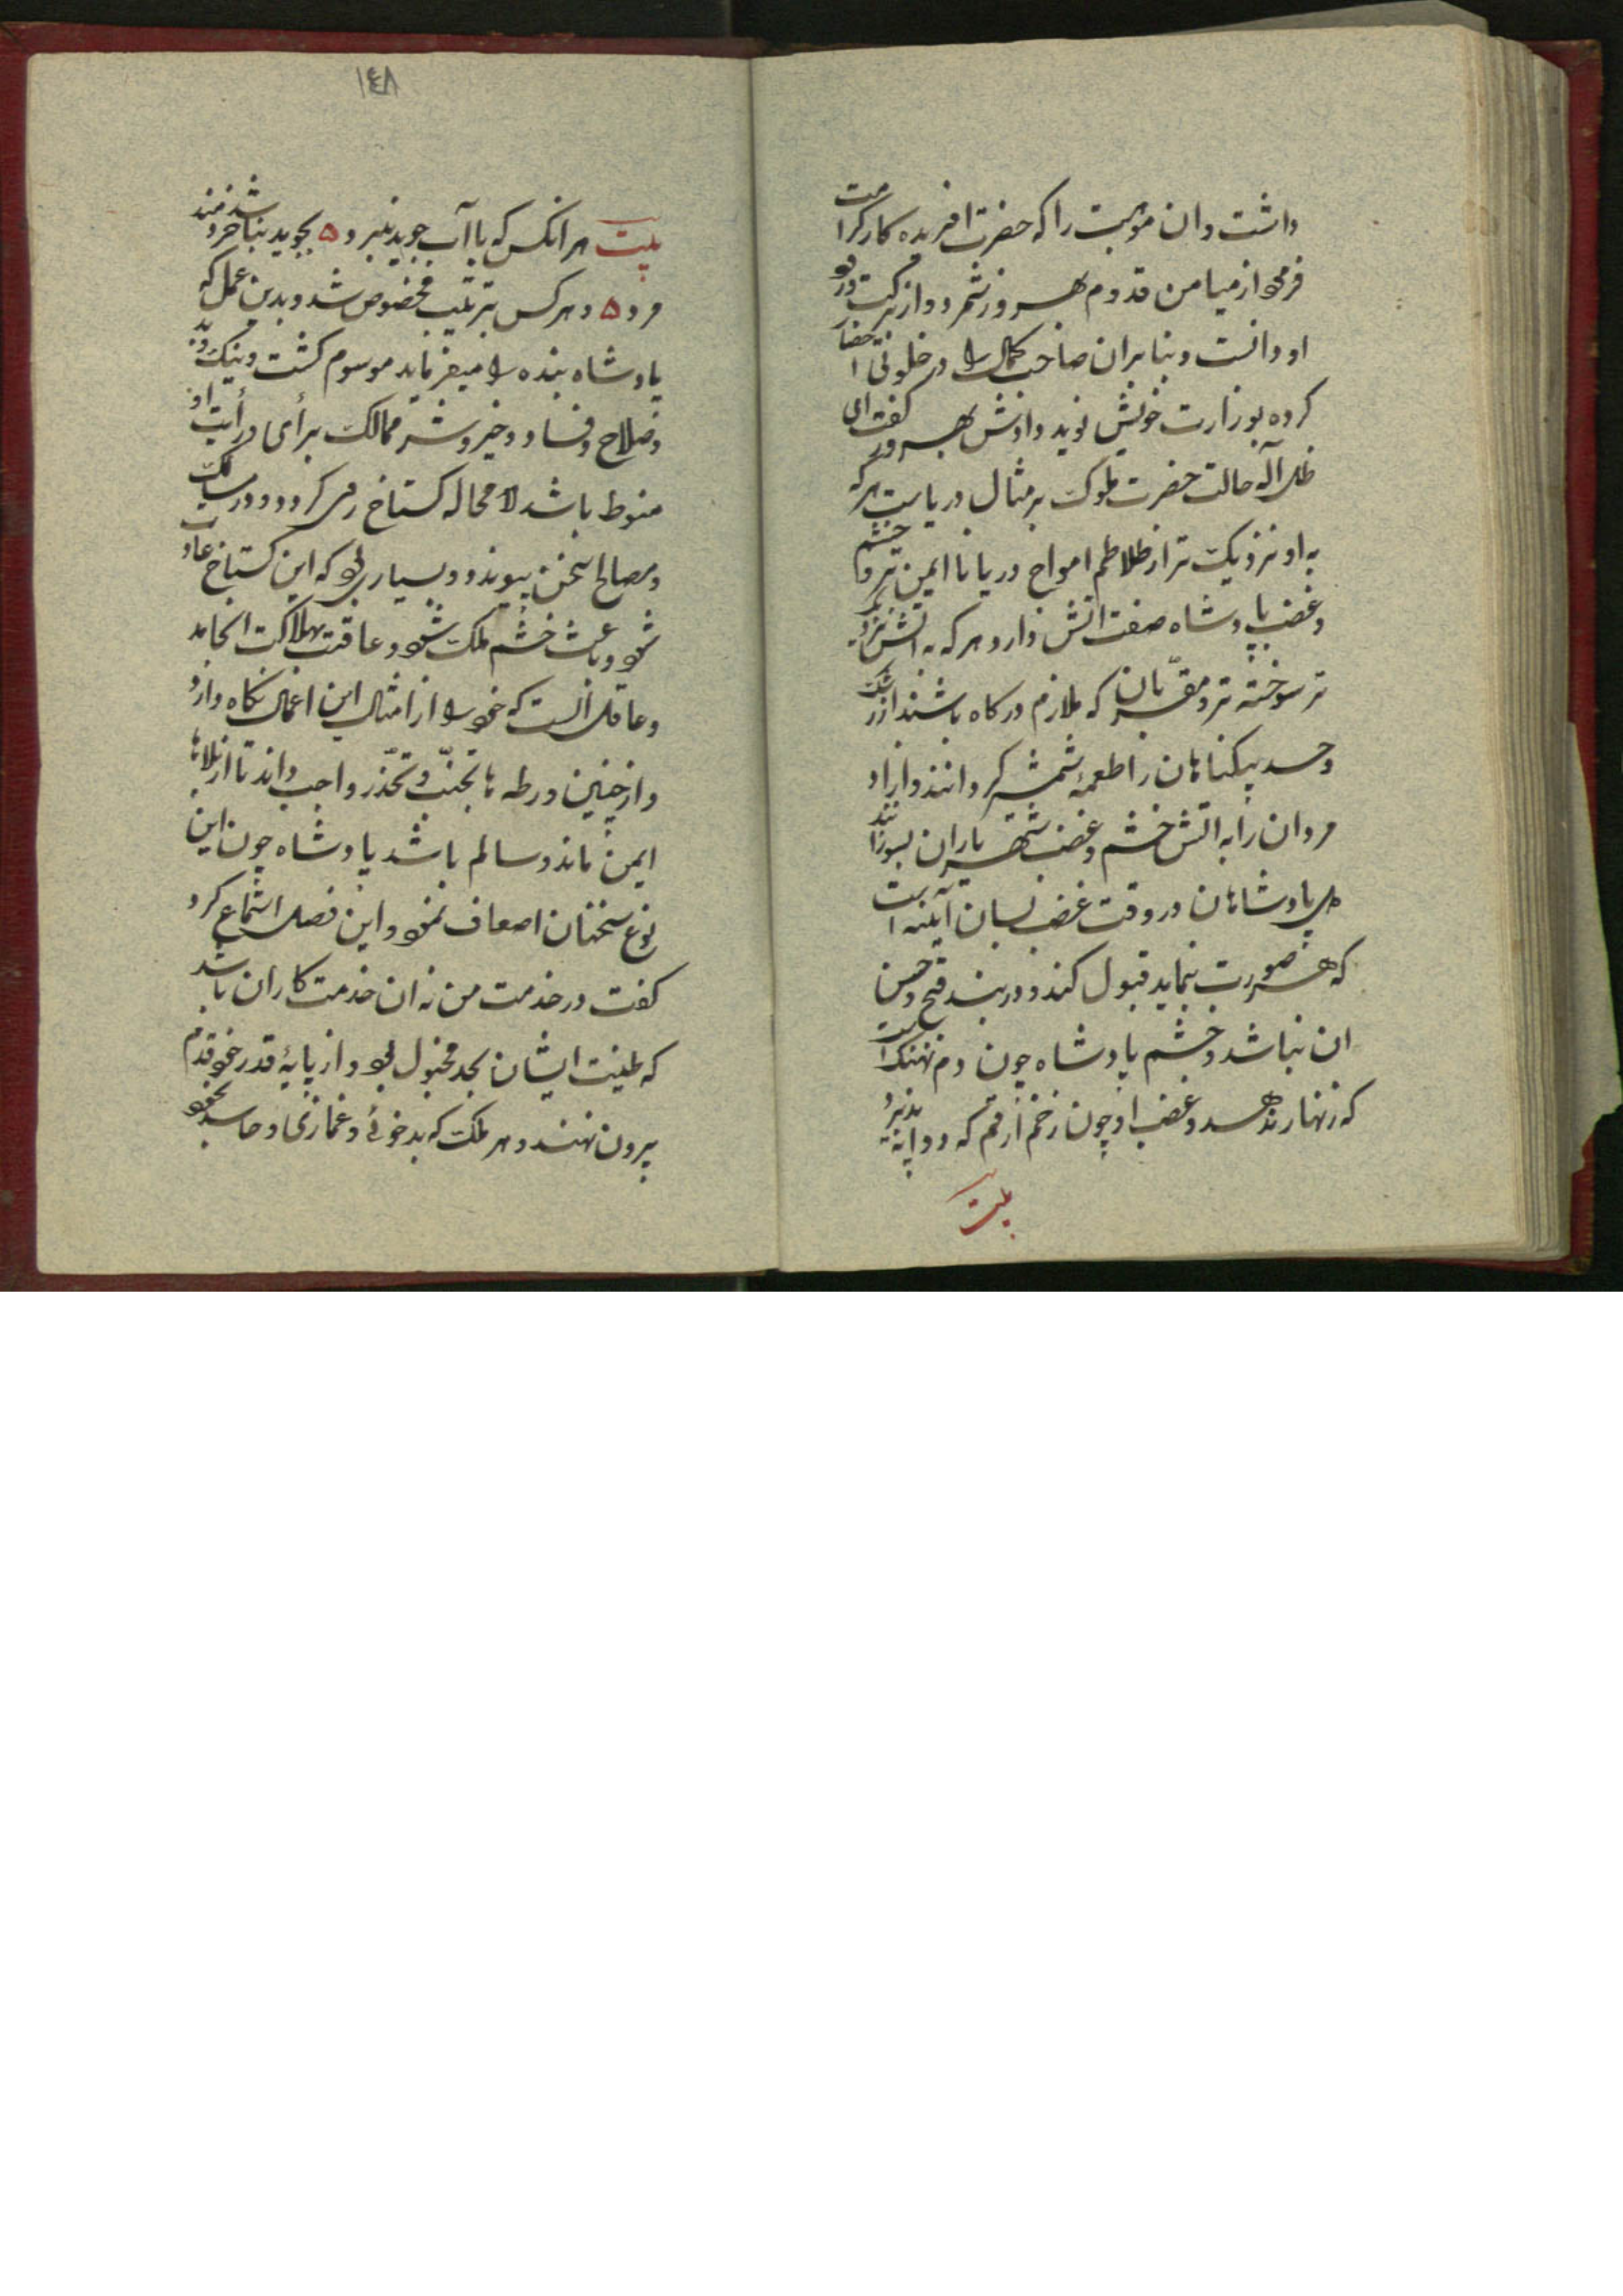 داشت و ان موهبت را که حضرت افریده کار کرامت
فرمود از میامن قدوم بهروز شمرد و از برکت ورود
او دانست و بنابران صاحب کمال را در خلوتی احضار
کرده بوزارت خویش نوید دادش بهروز کفت ای
ظل اله حالت حضرت ملوک بر مثال دریاست هر که
به او نزدیک تر از طلاطم امواج دریا نا ایمن تر و خشم
و غضب پادشاه صفت اتش دارد هر که به اتش نزدیک
تر سوخته تر و مقربان که ملازم درکاه باشند از رشک
و حسد بیکناهان را طعمه شمشیر کردانند و ازاد
مردان را به اتش خشم و غضب شهریاران بسوزانند
دل پادشاهان در وقت غضب بسان آیئنه است
که هر صورت بنماید قبول کند و در بند قبح و حسن
ان نباشد و خشم پادشاه چون دم نهنک است
که زنهار ندهد و غضب او چون زخم ارقم که دوا نپذیرد
بیت
١٤٨
بیت هر انکس که با آب جوید نبرد ۵ بجوید نباشد خردمند
مرد ۵ و هر کس بترتیب مخصوص شد و بدین عمل که
پادشاه بنده را میفرماید موسوم کشت و نیک و بد
و صلاح و فساد و خیر و شر ممالک برأی درأیت او
منوط باشد لا محاله کستاخ رمی کردد و در مسالک
و مصالح سخن پیوندد و بسیار بود که این کستاخ عادت
شود و باعث خشم ملک شود و عاقبت بهلاکت انجامد
و عاقل انست که خود را از امثال این اعمال نکاه دارد
و از چنین ورطه ها تجنّب و تحذّر واجب داند تا از بلاها
ایمن ماند و سالم باشد پادشاه چون این
نوع سخنان اصعاف نمود و این فصل استماع کرد
کفت در خدمت من نه ان خدمت کاران باشد
که طینت ایشان بجد مخبول بود و از پایهٔ قدر خود قدم
بیرون نهند و هر ملک که بدخوئے و غمازی و حاسد بخود